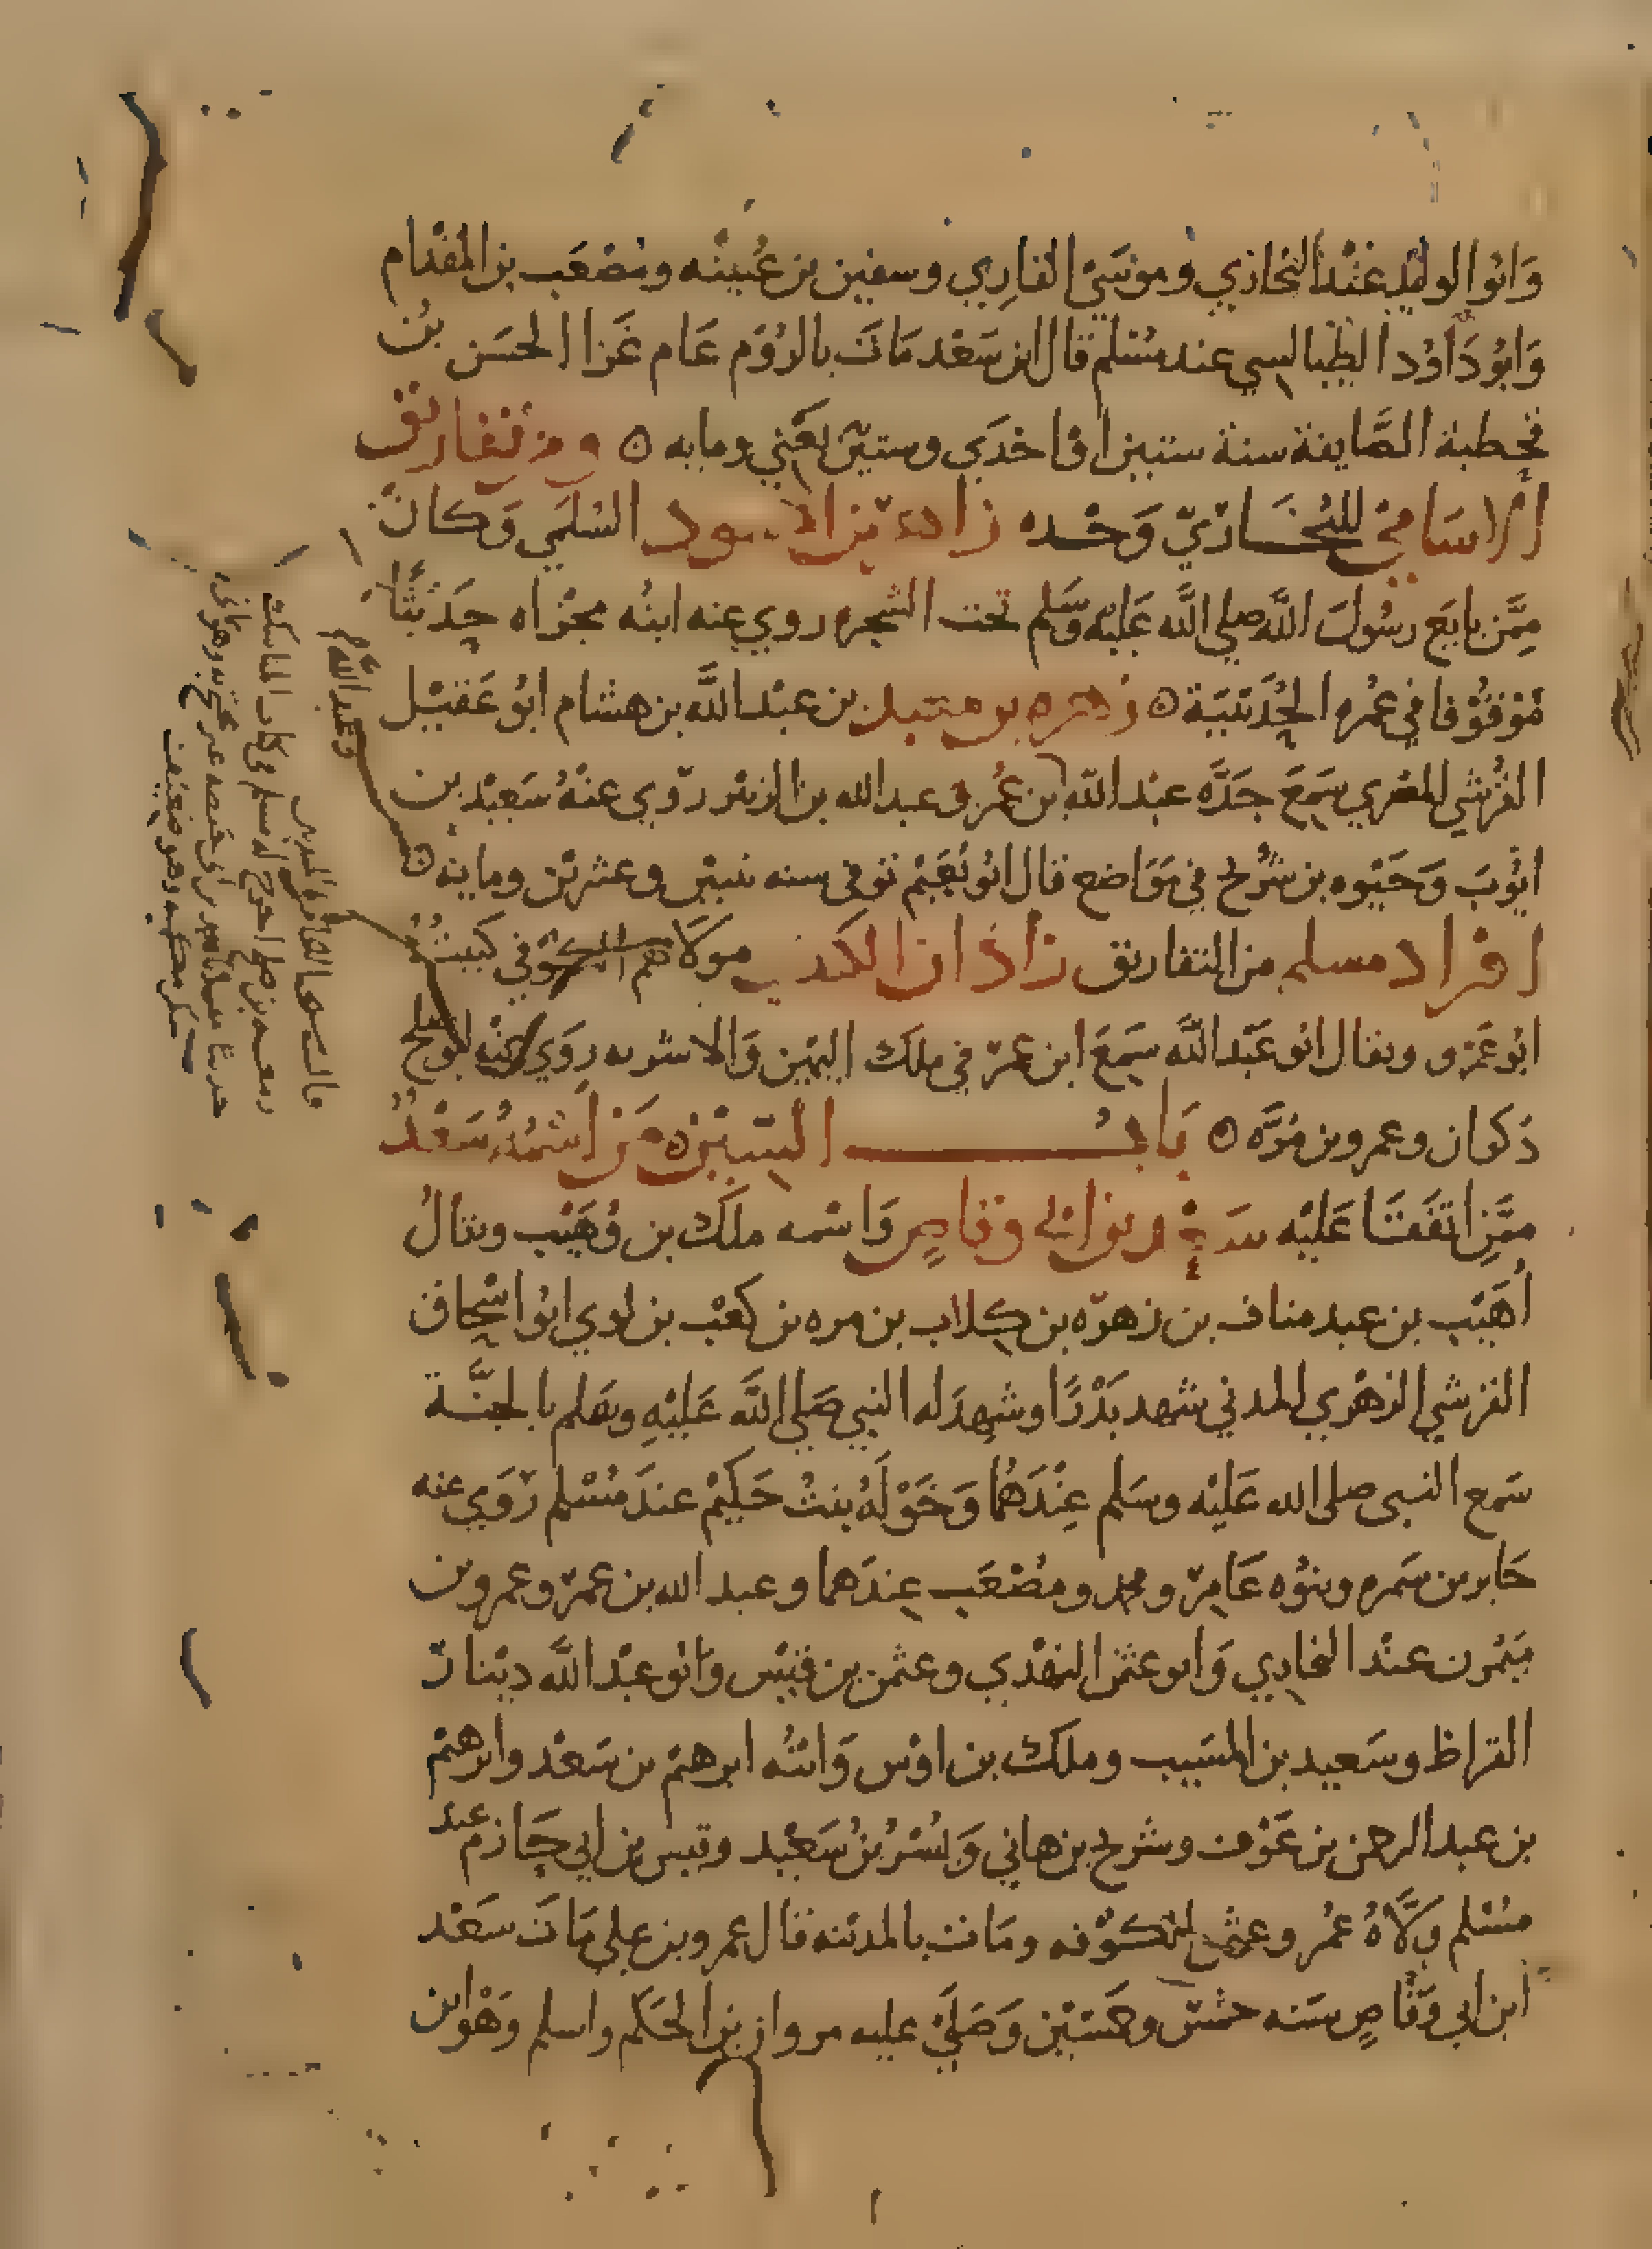 وَابُوا الوليد عنْد البخاري وموسَي القاري وسفين بن عُيينه ومصْعَب بن المقدَام
وَابُو دَاوُد الطيالسي عند مسْلم قال ابن سَعْد مَاتَ بالرُوْم عَام غَزا الحسَن بْن
قحطبة الصَّايفة سنة ستين او احْدَي وستيْن يعَني ومايه ٥ ومن تفاريق
الاسَامي للبُخَاريّ وَحْده زاهر بن الاسود السُلمَي وَكانَ
ممَّن بايَع رسُولَ اللَّه صلي اللَّه عَليْه وسَلم تحت الشجره روي عنه ابنُه مجزاه حدَيثًا
مَوْقوُفا في عمُره الحُدَيْبيَة ٥ زهره بن معبد بن عبْد اللَّه بن هشام ابوُ عَقيْل
القُرشي المصْري سَمِعَ جَدَّه عبْد اللَّه بن عمُر وعبد الله بن الزبيْر روَي عنْهُ سَعيْد بن
ايوُبَ وَحَيْوه بن شُريح في مَوَاضع قال ابوُ نُعَيْم توفي سنه سَبع وعشريْن ومايه ٥
افراد مسلم من التفاريق زاذان الكندي مولَاهم الكوفي كنيتُهُ
ابوُ عَمْرو ويقال ابو عَبْد اللَّه سَمِعَ ابن عمَر في ملك اليَمين وَالاشربه رِوَي عنْه ابوُ صَالح
ذكوان وعمرو بن مُرَّه ٥ بَابُ السّيْن ٥ مَن اسْمُهُ سَعْدٌ
ممَّن اتفَقَا عَليْه سَعْد بن ابي وقاصٍ وَاسْمه ملَك بن وُهَيْب ويقالُ
أُهَيْب بن عبد مناف بن زهْره بن كلاب بن مره بن كعْب بن لوي ابوُ اسْحاق
القرشي الزهْري المدني شهد بَدْرًا وشهدَ له النبي صَلي اللَّه عَليْهِ وسَلم بالجنَّة
سَمع النبي صلي الله عَليْه وسَلم عِنْدَهُما وَخَوْلَهُ بنتُ حَكيْم عندَ مُسْلم رَوَي عنه
جَابر بن سَمره وبنوُه عَامِرْ ومحمد ومصْعَب عِندَهما وعبد الله بن عمَرْ وعمرو بن
مَيْمون عنْد البخاري وَابو عثمن النهْدي وعثمن بن قيْس وَابوُ عبْد اللَّه ديْنار
القراظ وسَعيد بن المسَيب وملَك بن اوْس وَابنُه ابرهيْم بن سَعْد وابرهيْم
بن عبد الرحمن بن عَوْف وشريح بن هاني وَبُسْرُ بنُ سَعيْد وقيس بن ابي حَازم عند
مسْلم وَلَّاهُ عمُر وعثمن الكوُفه ومَات بالمديْنه قال عمرو بن علي مَاتَ سَعْد
ابن ابي وَقَّاصٍ سَنه خمسْ وخمَسيْن وَصَلَّيَ عليه مروان بن الحَكم واسلم وَهْو ابن
وعبد اللَّه